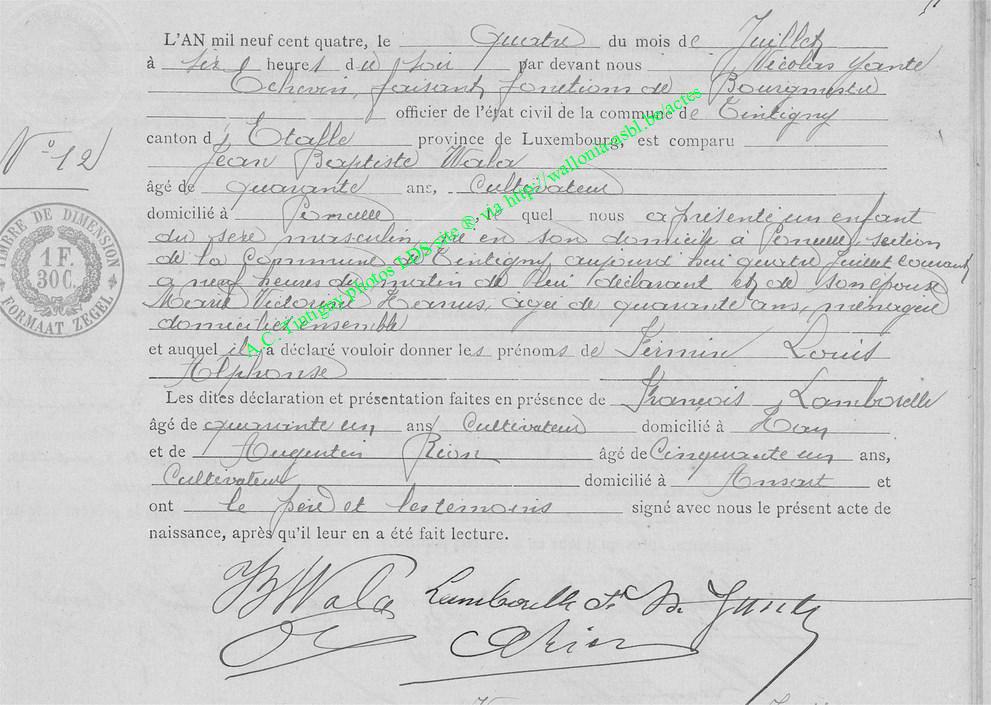 L'AN mil neuf cent quatre, le quatre du mois de Juillet
à six heures du soir par devant nous Nicolas Yante
Echevin, faisant fonctions de Bourgmestre
officier de l'état civil de la commune de Tintigny
canton d' Etalle province de Luxembourg, est comparu
Jean Baptiste Wala
N° 12
âgé de quarante ans, Cultivateur
domicilié à le quel nous a présenté un enfant
du sexe masculin, né en son domicile à section
de la Commune de Tintigny aujourd'hui quatre Juillet courant
à neuf heures du matin de lui déclarant et de son épouse
Marie Victorine agée de quarante ans, ménagère
domiciliés ensemble
et auquel il a déclaré vouloir donner les prénoms de Firmin Louis
Alphonse
Les dites déclaration et présentation faites en présence de François Lamborelle
âgé de quarante un ans Cultivateur domicilié à Han
et de Augustin Rion âgé de Cinquante un ans,
Cultivateur domicilié à Ansart et
ont le père et les temoins signé avec nous le présent acte de
naissance, après qu'il leur en a été fait lecture.
JB Wala Lamborelle Fr N. Yante
A Rion
TIMBRE DE DIMENSION
1 F.
30 C.
FORMAAT ZEGEL
A.C. Tintigny photos LDS site ® via http://wallonia.asbl.be/actes